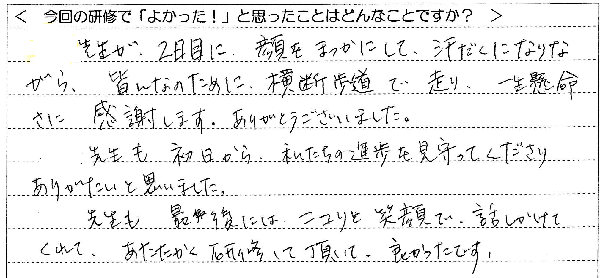 < 今回の研修で「よかった！」と思ったことはどんなことですか？ >
先生が、2日目に、顔をまっかにして、汗だくになりな
がら、皆んなのために、横断歩道で走り、一生懸命
さに感謝します。ありがとうございました。
先生も初日から、私たちの進歩を見守ってくださり
ありがたいと思いました。
先生も最後には、ニコリと笑顔で、話しかけて
くれて、あたたかく研修して頂いて、良かったです。